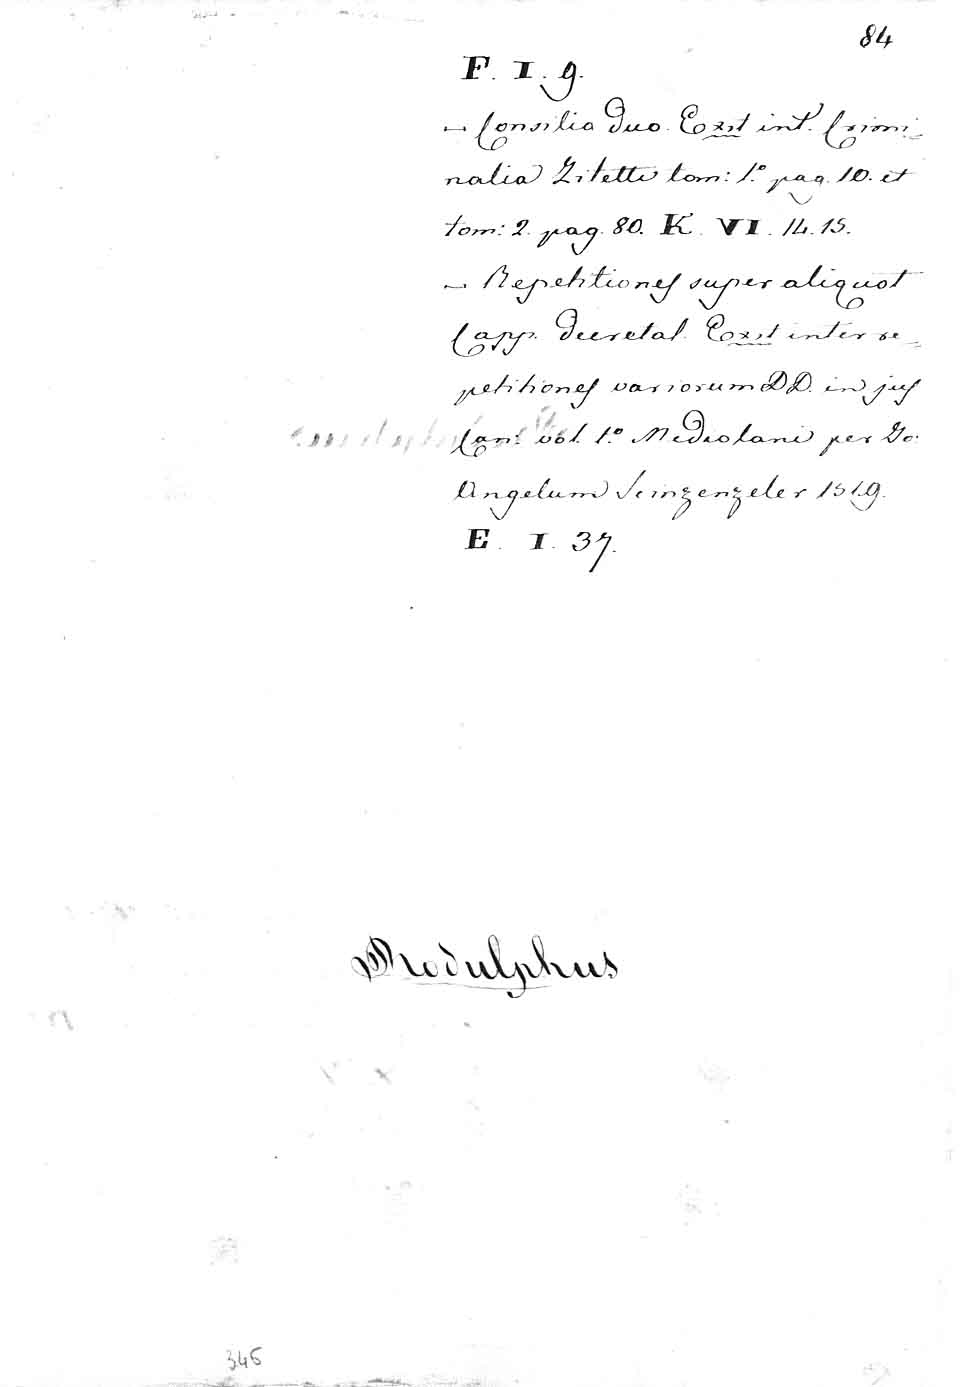 84
F. I. 9.
— Consilia duo. Exst int. Crimi-
nalia Ziletti tom: 1.º pag. 10. et
tom: 2. pag. 80. K. VI. 14. 15.
— Repetitiones super aliquot
Capp. Decretal. Exst inter re-
petitiones variorum DD. in jus
Can. vol. 1.º Mediolani per Jo.
Angelum Scinzenzeler 1519.
E. I. 37.
Rodulphus
346